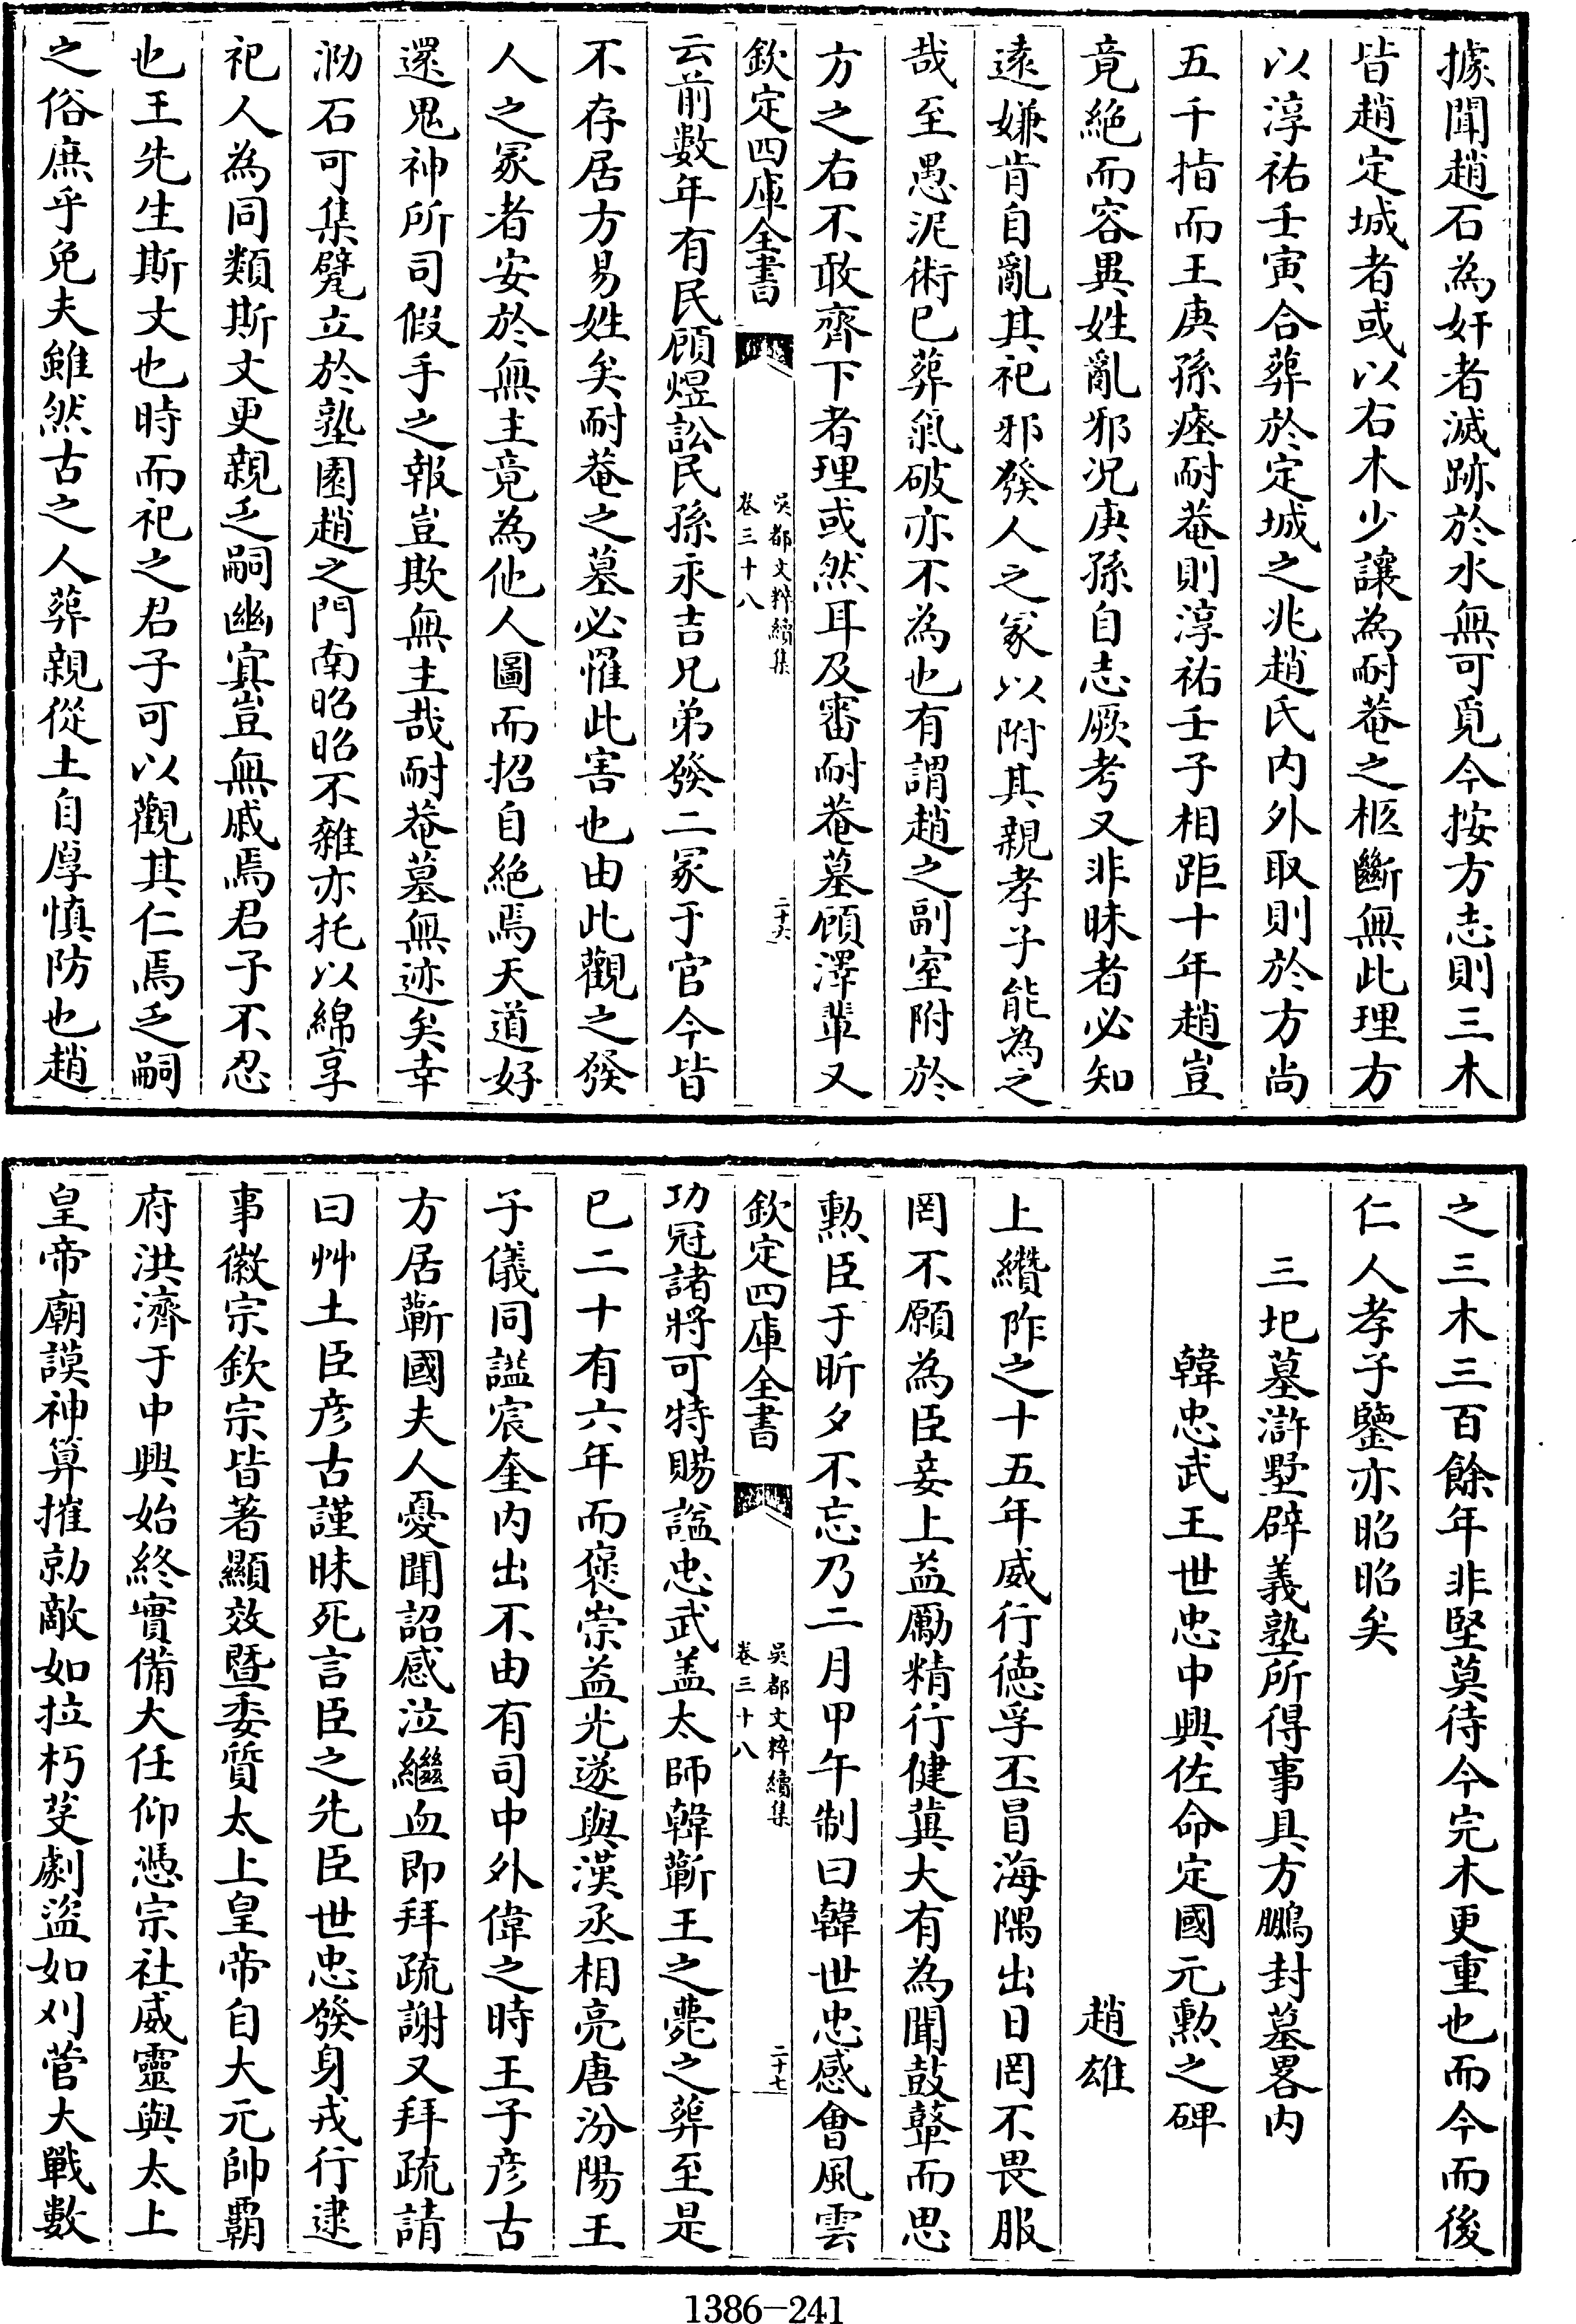 據聞趙石為奸者滅跡於水無可覓今按方志則三木
皆趙定城者或以右木少讓為耐菴之柩斷無此理方
以淳祐壬寅合葬於定城之兆趙氏内外取則於方尚
五千指而王庚孫瘞耐菴則淳祐壬子相距十年趙豈
竟絶而容異姓亂邪况庚孫自志厥考又非昧者必知
逺嫌肯自亂其祀邪發人之冢以附其親孝子能為之
哉至愚泥術已葬氣破亦不為也有謂趙之副室附於
方之右不敢齊下者理或然耳及審耐菴墓顧澤輩又
欽定四庫全書
吳都文粹續集
卷三十八
二十六
云前數年有民顧煜訟民孫永吉兄弟發二冢于官今皆
不存居方易姓矣耐菴之墓必罹此害也由此觀之發
人之冢者安於無主竟為他人圖而招自絶焉天道好
還鬼神所司假手之報豈欺無主哉耐菴墓無迹矣幸
泐石可集甓立於塾園趙之門南昭昭不雜亦托以綿享
祀人為同類斯文更親乏嗣幽寘豈無戚焉君子不忍
也王先生斯文也時而祀之君子可以觀其仁焉乏嗣
之俗庶乎免夫雖然古之人葬親從土自厚慎防也趙
之三木三百餘年非堅莫待今完木更重也而今而後
仁人孝子鑒亦昭昭矣
三圯墓滸墅辟義塾所得事具方鵬封墓畧内
韓忠武王世忠中興佐命定國元勲之碑
趙雄
上纘阼之十五年威行徳孚丕冒海隅出日罔不畏服
罔不願為臣妾上益勵精行健冀大有為聞鼓鼙而思
勲臣于昕夕不忘乃二月甲午制曰韓世忠感會風雲
欽定四庫全書
吳都文粹續集
卷三十八
二十七
功冠諸將可特賜諡忠武盖太師韓蘄王之薨之葬至是
已二十有六年而褒崇益光遂與漢丞相亮唐汾陽王
子儀同諡宸奎内出不由有司中外偉之時王子彦古
方居蘄國夫人憂聞詔感泣繼血即拜疏謝又拜疏請
曰艸土臣彦古謹昧死言臣之先臣世忠發身戎行逮
事徽宗欽宗皆著顯效暨委質太上皇帝自大元帥霸
府洪濟于中興始終實備大任仰憑宗社威靈與太上
皇帝廟謨神算摧勍敵如拉朽芟劇盜如刈菅大戰數
1386-241